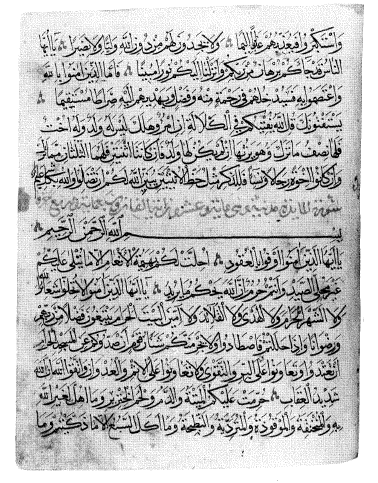 واستكبروا فيعذبهم عذابا اليما ولا يجدون لهم من دون الله وليا ولا نصيرا يا ايها
الناس قد جاءكم برهان من ربكم وانزلنا اليكم نورا مبينا فاما الذين امنوا بالله
واعتصموا به فسيدخلهم في رحمة منه وفضل ويهديهم اليه صراطا مستقيما
يستفتونك قل الله يفتيكم في الكلالة ان امرؤ هلك ليس له ولد وله اخت
فلها نصف ما ترك وهو يرثها ان لم يكن لها ولد فان كانتا اثنتين فلهما الثلثان مما ترك
وان كانوا اخوة رجالا ونساء فللذكر مثل حظ الانثيين يبين الله لكم ان تضلوا والله بكل شيء عليم
سورة المائدة مدنية وهي مائة وعشرون
بسم الله الرحمن الرحيم
يا ايها الذين امنوا اوفوا بالعقود احلت لكم بهيمة الانعام الا ما يتلى عليكم
غير محلي الصيد وانتم حرم ان الله يحكم ما يريد يا ايها الذين امنوا لا تحلوا شعائر الله
ولا الشهر الحرام ولا الهدي ولا القلائد ولا امين البيت الحرام يبتغون فضلا من ربهم
ورضوانا واذا حللتم فاصطادوا ولا يجرمنكم شنان قوم ان صدوكم عن المسجد الحرام
ان تعتدوا وتعاونوا على البر والتقوى ولا تعاونوا على الاثم والعدوان واتقوا الله ان الله
شديد العقاب حرمت عليكم الميتة والدم ولحم الخنزير وما اهل لغير الله
به والمنخنقة والموقوذة والمتردية والنطيحة وما اكل السبع الا ما ذكيتم وما